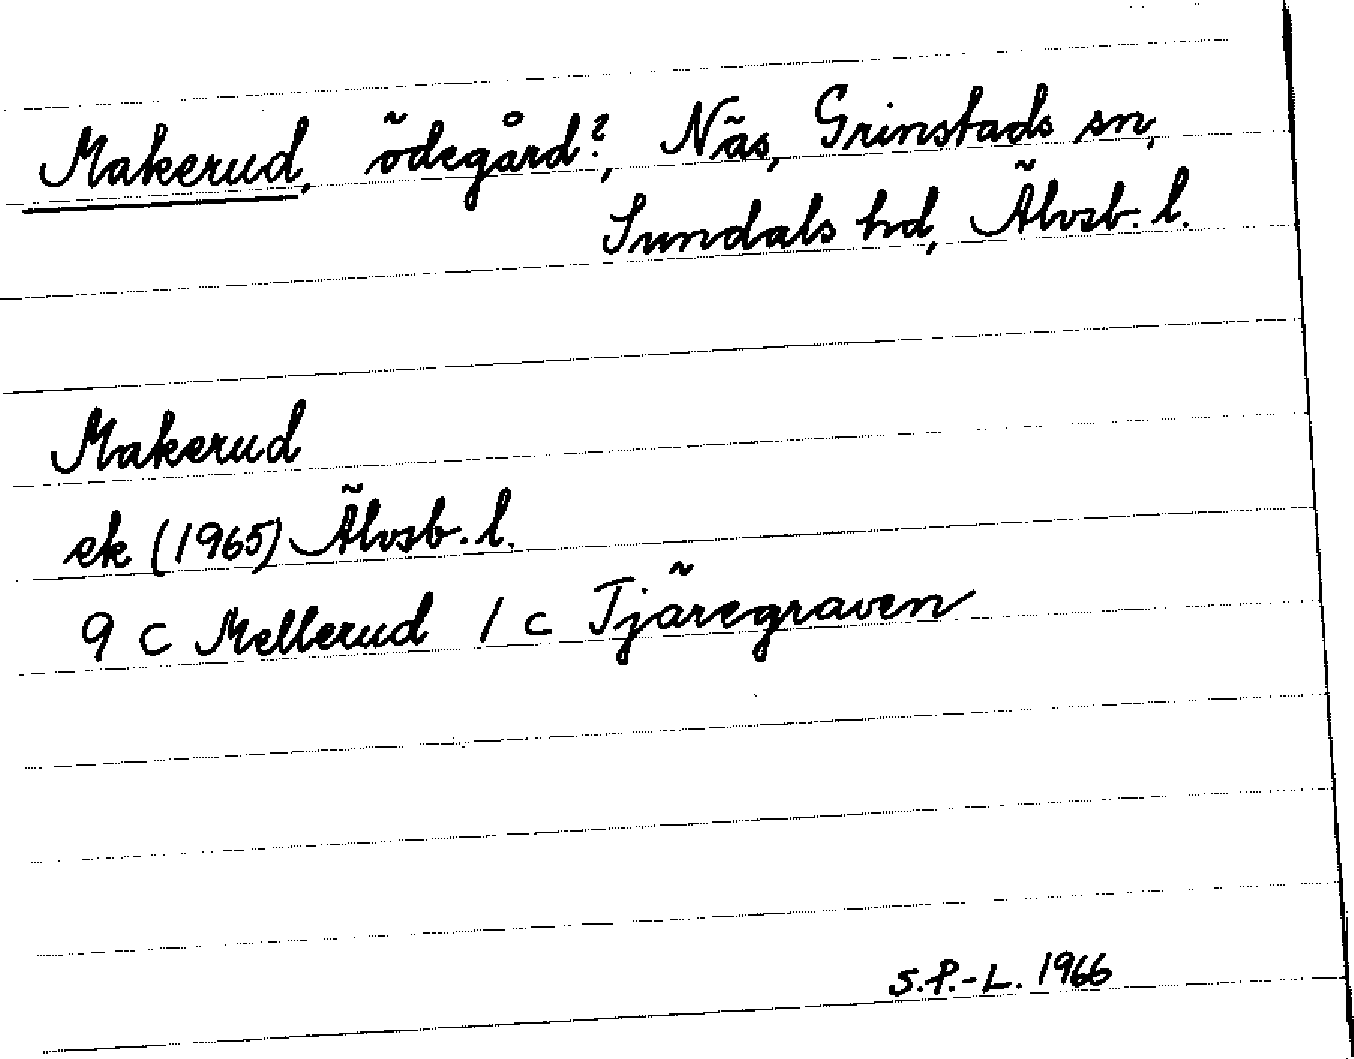 Makerud, ödegård?, Näs, Grinstads sn,
Sundals hd, Älvsb. l.
Makerud
ek (1965) Älvsb. l.
9 C Mellerud 1 c Tjäregraven
S.P.-L. 1966